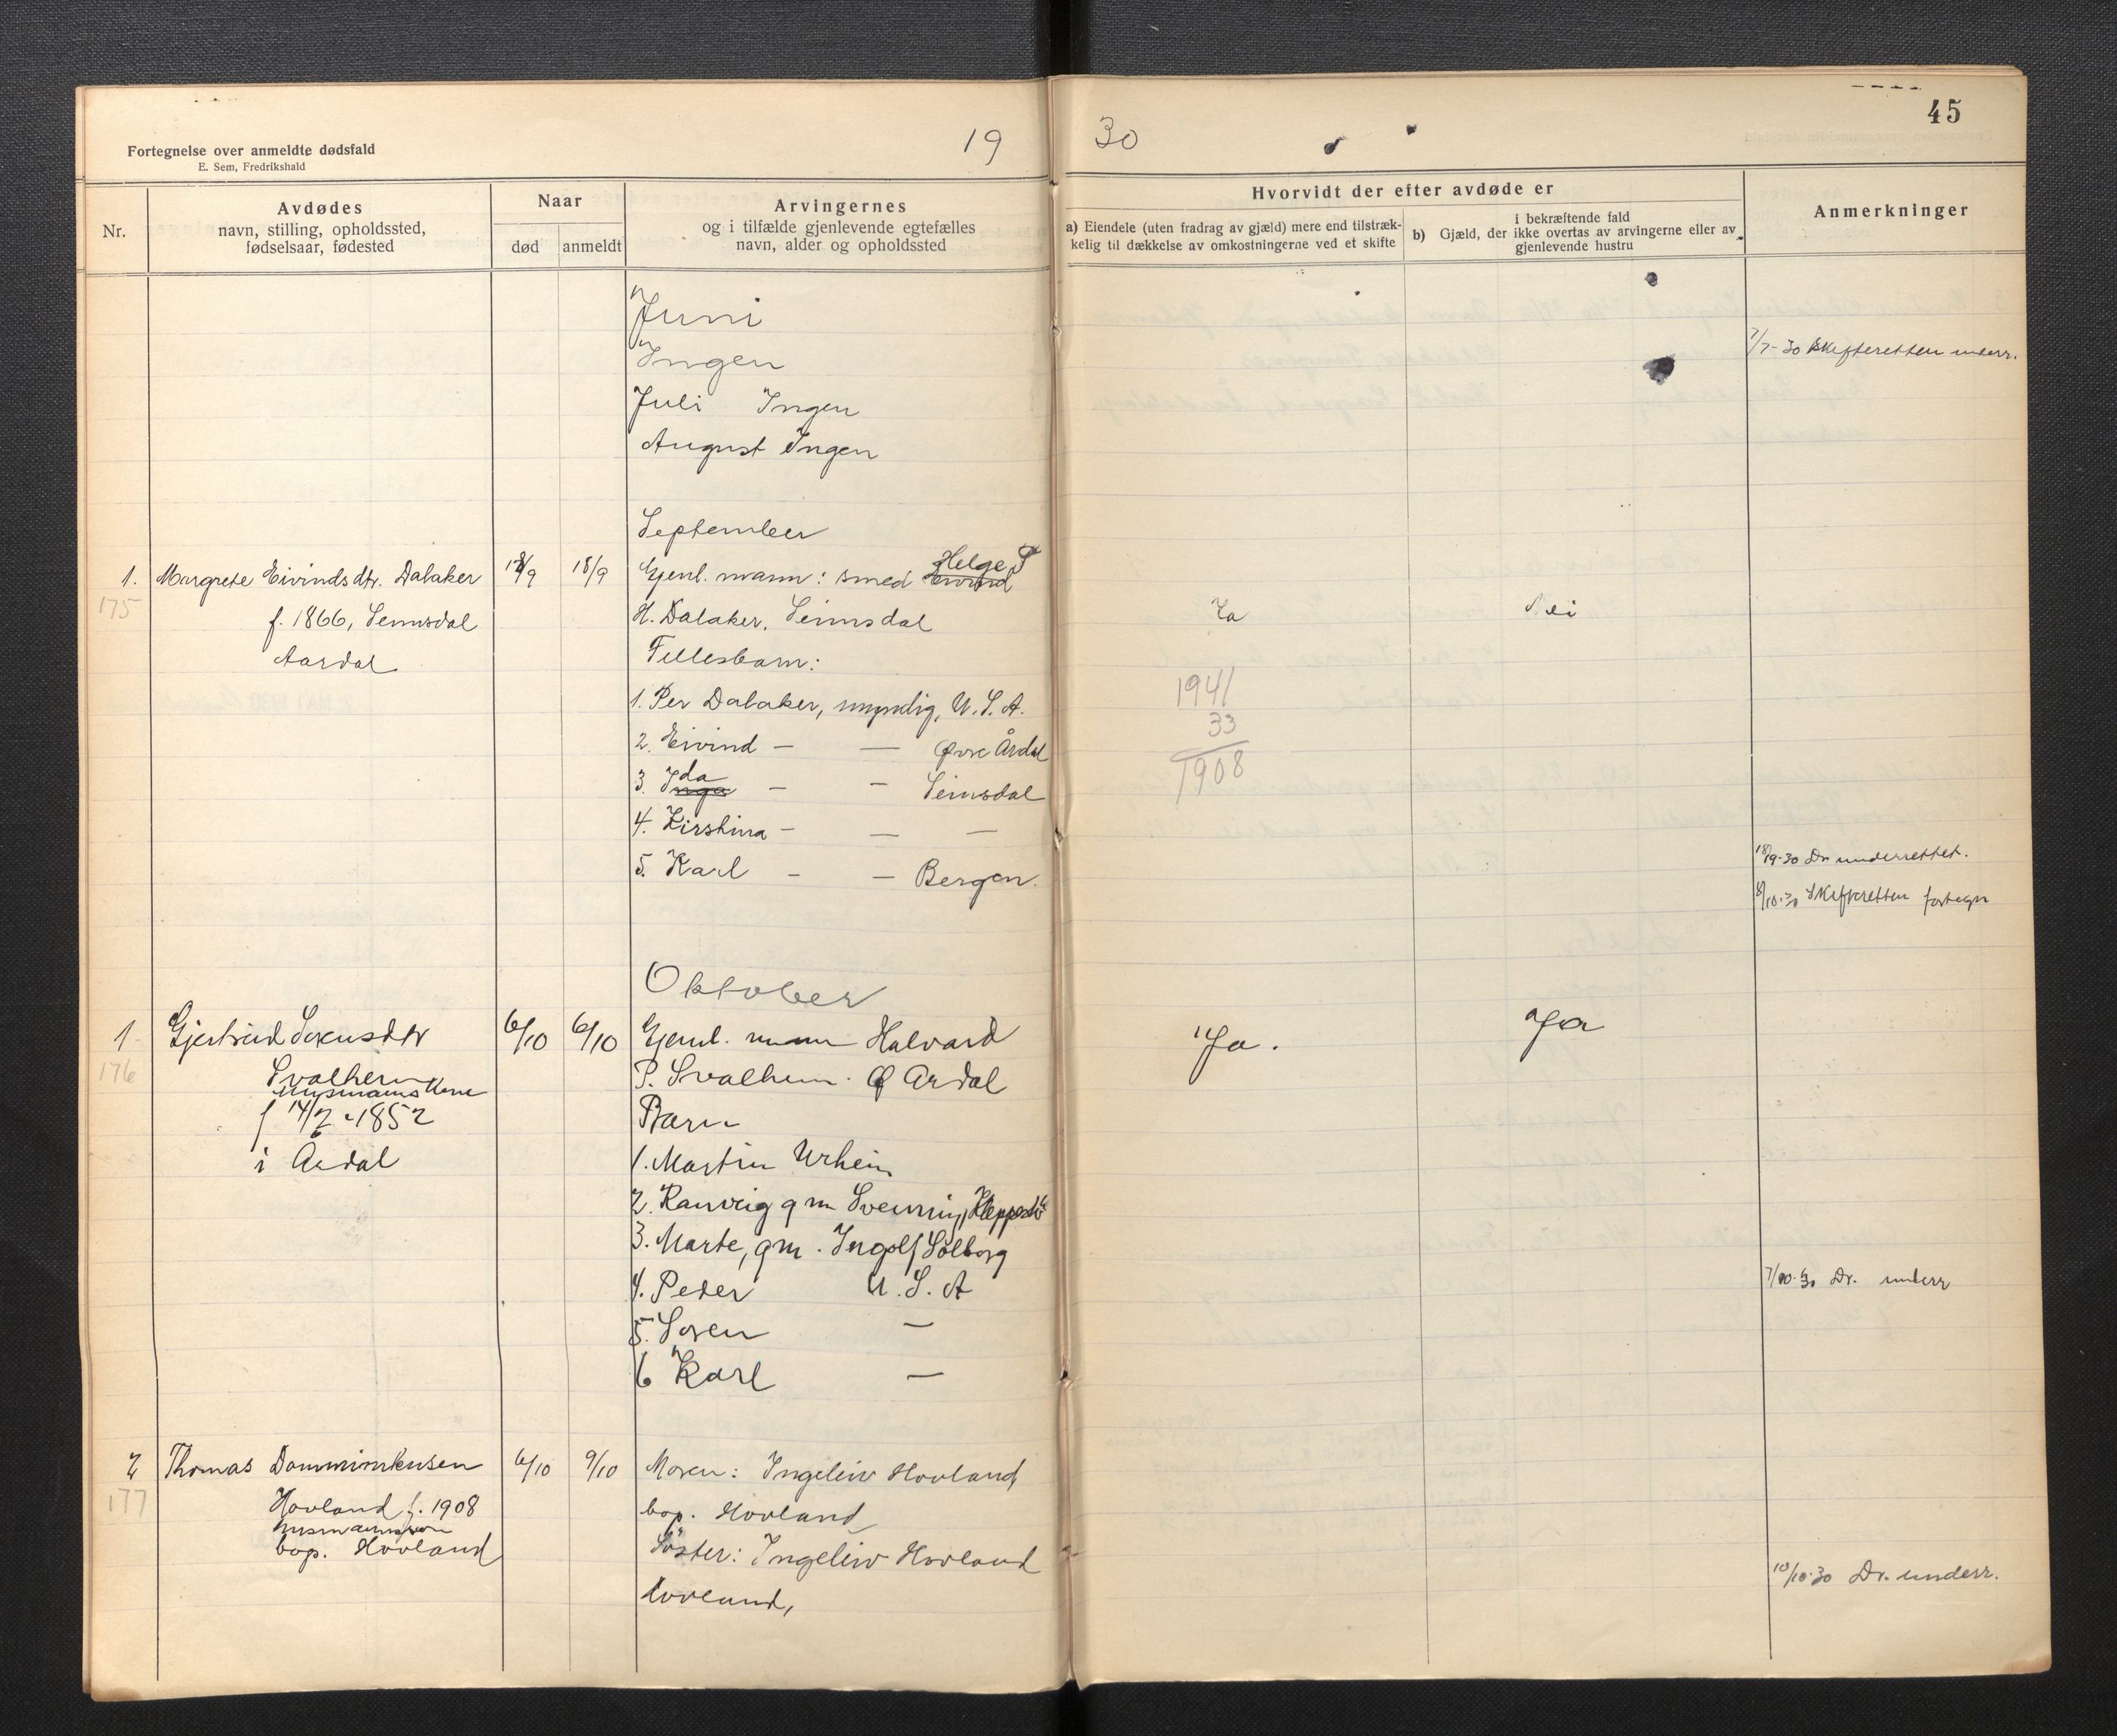 Fortegnelse over anmeldte dødsfald
E. Sem, Fredrikshald
19
30
45
Nr.
Avdødes
navn, stilling, opholdssted,
fødselsaar, fødested
Naar
død
anmeldt
Arvingernes
og i tilfælde gjenlevende egtefælles
navn, alder og opholdssted
Hvorvidt der efter avdøde er
a) Eiendele (uten fradrag av gjæld) mere end tilstræk-
kelig til dækkelse av omkostningerne ved et skifte
b) Gjæld, der i bekræftende fald ikke overtas av arvingerne eller av
gjenlevende hustru
Anmerkninger
Juni
Ingen
7/7-30 Skifteretten underr.
Juli Ingen
August Ingen
September
1. Margrete Eivindsdtr. Dalaker 18/9 Gjenl. mann: smed Eivind Helge P
175
f. 1866, Seimsdal H. Dalaker, Seimsdal Ja Nei
Aardal Fellesbarn:
1. Per Dalaker, myndig, U.S.A. 1941
33
2. Eivind — — Øvre Årdal
1908
3. Inga Ida — — Seimsdal
4. Kirstina — — —
5. Karl — — Bergen.
18/9-30 Dr underrettet.
8/10-30 Skifteretten fortegn
Oktober
1 Gjertrud Sørensdtr 6/10 6/10 Gjenl. mann Halvard Ja. Ja
176
Svalheim P. Svalheim. Ø Årdal
husmannskone
f 14/2-1852 Barn
i Årdal 1. Martin Urheim
2. Ranveig gm Svenning Kleppestø
3. Marte, gm. Ingolf Solborg
4. Peder U.S.A
7/10-30 Dr. underr
5. Søren —
6 Karl —
2 Thomas 6/10 9/10 Moren: Ingeleiv Hovland
177
Hovland f. 1908 bop. Hovland
husmannssøn
bop. Hovland Søster: Ingeleiv Hovland
Hovland,
10/10-30 Dr. underr.